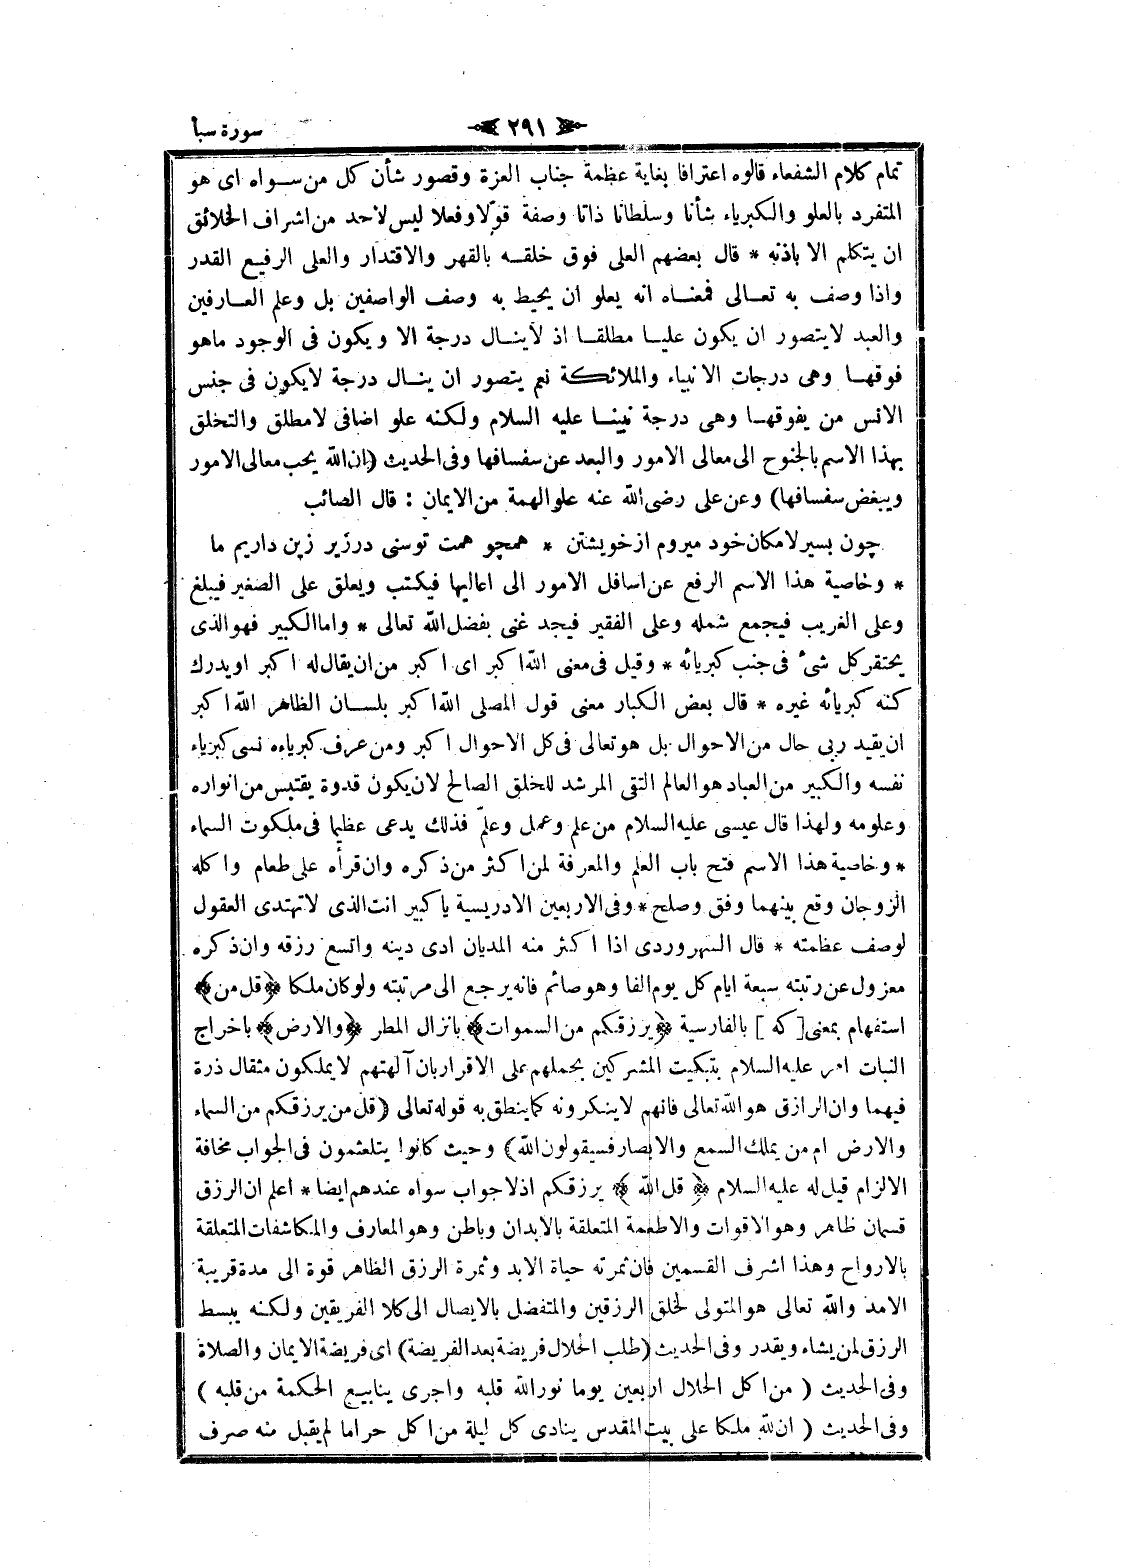 سورة سبأ
٢٩١
تمام كلام الشفعاء قالوه اعترافا بغاية عظمة جناب العزة وقصور شأن كل من سواه اى هو
المتفرد بالعلو والكبرياء شأنا وسلطانا ذاتا وصفة قولا وفعلا ليس لاحد من اشراف الخلائق
ان يتكلم الا باذنه * قال بعضهم العلى فوق خلقه بالقهر والاقتدار والعلى الرفيع القدر
واذا وصف به تعالى فمعناه انه يعلو ان يحيط به وصف الواصفين بل وعلم العارفين
والعبد لا يتصور ان يكون عليا مطلقا اذ لا ينال درجة الا ويكون فى الوجود ماهو
فوقها وهى درجات الانبياء والملائكة نعم يتصور ان ينال درجة لا يكون فى جنس
الانس من يفوقها وهى درجة نبينا عليه السلام ولكنه علو اضافى لا مطلق والتخلق
بهذا الاسم بالجنوح الى معالى الامور والبعد عن سفسافها وفى الحديث (ان الله يحب معالى الامور
ويبغض سفسافها) وعن على رضى الله عنه علو الهمة من الايمان : قال الصائب
چون بسير لامكان خود ميروم از خويشتن * همچو همت توسنى در زير زين داريم ما
* وخاصية هذا الاسم الرفع عن اسافل الامور الى اعاليها فيكتب ويعلق على الصغير فيبلغ
وعلى الغريب فيجمع شمله وعلى الفقير فيجد غنى بفضل الله تعالى * واما الكبير فهو الذى
يحتقر كل شئ فى جنب كبريائه * وقيل فى معنى الله اكبر اى اكبر من ان يقال له اكبر او يدرك
كنه كبريائه غيره * قال بعض الكبار معنى قول المصلى الله اكبر بلسان الظاهر الله اكبر
ان يقيد ربى حال من الاحوال بل هو تعالى فى كل الاحوال اكبر ومن عرف كبرياءه نسى كبرياء
نفسه والكبير من العباد هو العالم التقى المرشد للخلق الصالح لان يكون قدوة يقتبس من انواره
وعلومه ولهذا قال عيسى عليه السلام من علم وعمل وعلّم فذلك يدعى عظيما فى ملكوت السماء
* وخاصية هذا الاسم فتح باب العلم والمعرفة لمن اكثر من ذكره وان قرأه على طعام واكله
الزوجان وقع بينهما وفق وصلح * وفى الاربعين الادريسية يا كبير انت الذى لا تهتدى العقول
لوصف عظمته * قال السهروردى اذا اكثر منه المديان ادى دينه واتسع رزقه وان ذكره
معزول عن رتبته سبعة ايام كل يوم الفا وهو صائم فانه يرجع الى مرتبته ولو كان ملكا ﴿قل من﴾
استفهام بمعنى [كه] بالفارسية ﴿يرزقكم من السموات﴾ بانزال المطر ﴿والارض﴾ باخراج
النبات امر عليه السلام بتبكيت المشركين بحملهم على الاقرار بان آلهتهم لا يملكون مثقال ذرة
فيهما وان الرازق هو الله تعالى فانهم لا ينكرونه كما ينطق به قوله تعالى (قل من يرزقكم من السماء
والارض ام من يملك السمع والابصار فسيقولون الله) وحيث كانوا يتلعثمون فى الجواب مخافة
الالزام قيل له عليه السلام ﴿قل الله﴾ يرزقكم اذ لا جواب سواه عندهم ايضا * اعلم ان الرزق
قسمان ظاهر وهو الاقوات والاطعمة المتعلقة بالابدان وباطن وهو المعارف والمكاشفات المتعلقة
بالارواح وهذا اشرف القسمين فان ثمرته حياة الابد وثمرة الرزق الظاهر قوة الى مدة قريبة
الامد والله تعالى هو المتولى لخلق الرزقين والمتفضل بالايصال الى كلا الفريقين ولكنه يبسط
الرزق لمن يشاء ويقدر وفى الحديث (طلب الحلال فريضة بعد الفريضة) اى فريضة الايمان والصلاة
وفى الحديث (من اكل الحلال اربعين يوما نور الله قلبه واجرى ينابيع الحكمة من قلبه)
وفى الحديث (ان لله ملكا على بيت المقدس ينادى كل ليلة من اكل حراما لم يقبل منه صرف